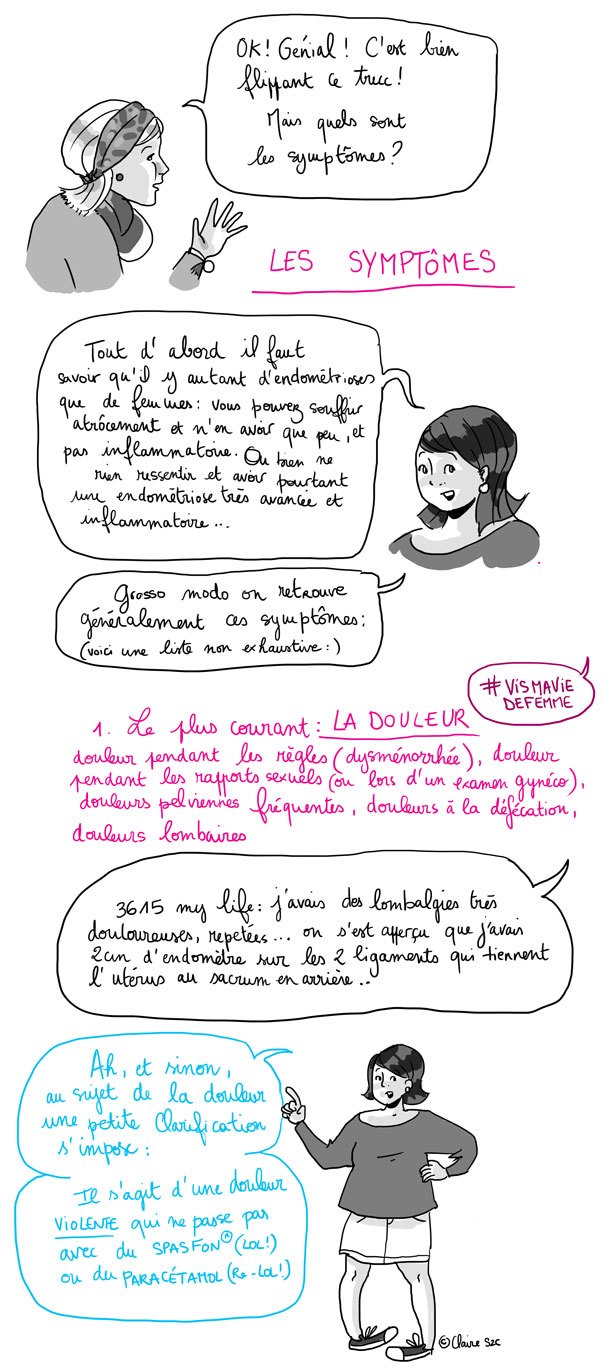 OK! Génial! C'est bien
flippant ce truc!
Mais quels sont
les symptômes?
LES SYMPTÔMES
Tout d'abord il faut
savoir qu'il y autant d'endométrioses
que de femmes: vous pouvez souffrir
atrôcement et n'en avoir que peu, et
pas inflammatoire. Ou bien ne
rien ressentir et avoir pourtant
une endométriose très avancée et
inflammatoire...
Grosso modo on retrouve
généralement ces symptômes:
(voici une liste non exhaustive:)
#VISMAVIE
DEFEMME
1. Le plus courant: LA DOULEUR
douleur pendant les règles (dysménorrhée), douleur
pendant les rapports sexuels (ou lors d'un examen gynéco),
douleurs pelviennes fréquentes, douleurs à la défécation,
douleurs lombaires
3615 my life: j'avais des lombalgies très
douloureuses, repetées... on s'est apperçu que j'avais
2cm d'endomètre sur les 2 ligaments qui tiennent
l'utérus au sacrum en arrière...
Ah, et sinon,
au sujet de la douleur
une petite Clarification
s'impose:
Il s'agit d'une douleur
VIOLENTE qui ne passe pas
avec du SPASFON® (LOL!)
ou du PARACÉTAMOL (Re-LOL!)
©Claire SZC